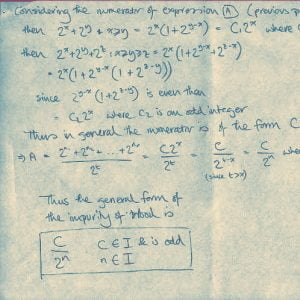 Considering the numerator of expression (A) (previous
then 2^x + 2^y , x>y = 2^x(1+2^{y-x}) = C_1 2^x where
then 2^x + 2^y + 2^z : x>y>z = 2^x(1+2^{y-x}+2^{z-x})
= 2^x(1+2^{y-x}(1+2^{z-y}))
since 2^{y-x}(1+2^{z-y}) is even then
= C_2 2^x where C_2 is an odd integer
Thus in general the numerator is of the form C
⇒ A = = C2^x/2^t = C/2^{t-x} = C/2^n where
(since t>x)
Thus the general form of
the impurity of blood is
C/2^n C ∈ I & is odd
n ∈ I